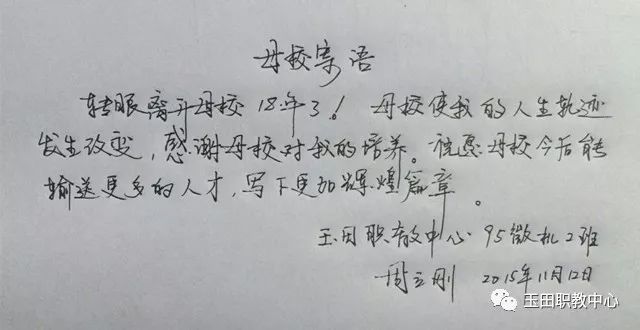 母校寄语
转眼离开母校18年了！母校使我的人生轨迹
发生改变，感谢母校对我的培养。祝愿母校今后能
输送更多的人才，写下更加辉煌篇章。
玉田职教中心 95微机2班
周立刚 2015年11月12日
玉田职教中心